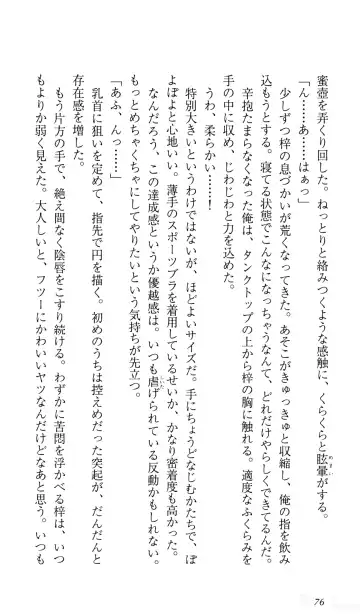 蜜壺を弄くり回した。ねっとりと絡みつくような感触に、くらくらと眩暈がする。
「ん……あ……はぁっ」
少しずつ梓の息づかいが荒くなってきた。あそこがきゅっきゅと収縮し、俺の指を飲み
込もうとする。寝てる状態でこんなになっちゃうなんて、どれだけやらしくできてるんだ。
辛抱たまらなくなった俺は、タンクトップの上から梓の胸に触れる。適度なふくらみを
手の中に収め、じわじわと力を込めた。
うわ、柔らかい……!
特別大きいというわけではないが、ほどよいサイズだ。手にちょうどなじむかたちで、ぽ
よぽよと心地いい。薄手のスポーツブラを着用しているせいか、かなり密着度も高かった。
なんだろう、この達成感というか優越感は。いつも虐げられている反動かもしれない。
もっとめちゃくちゃにしてやりたいという気持ちが先立つ。
「あふ、んっ……」
乳首に狙いを定めて、指先で円を描く。初めのうちは控えめだった突起が、だんだんと
存在感を増した。
もう片方の手で、絶え間なく陰唇をこすり続ける。わずかに苦悶を浮かべる梓は、いつ
もよりか弱く見えた。大人しいと、フツーにかわいいヤツなんだけどなあと思う。いつも
76